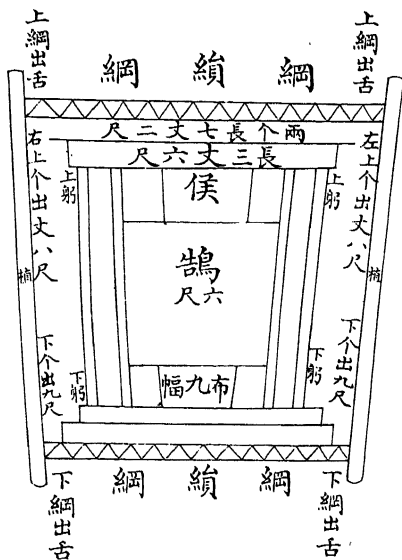 上綱出舌
上綱出舌
綱縜綱
兩个長七丈二尺
長三丈六尺
左上个出丈八尺
右上个出丈八尺
上躬
上躬
侯
鵠
六尺
下个出九尺
下个出九尺
下躬
下躬
布九幅
綱縜綱
下綱出舌
下綱出舌